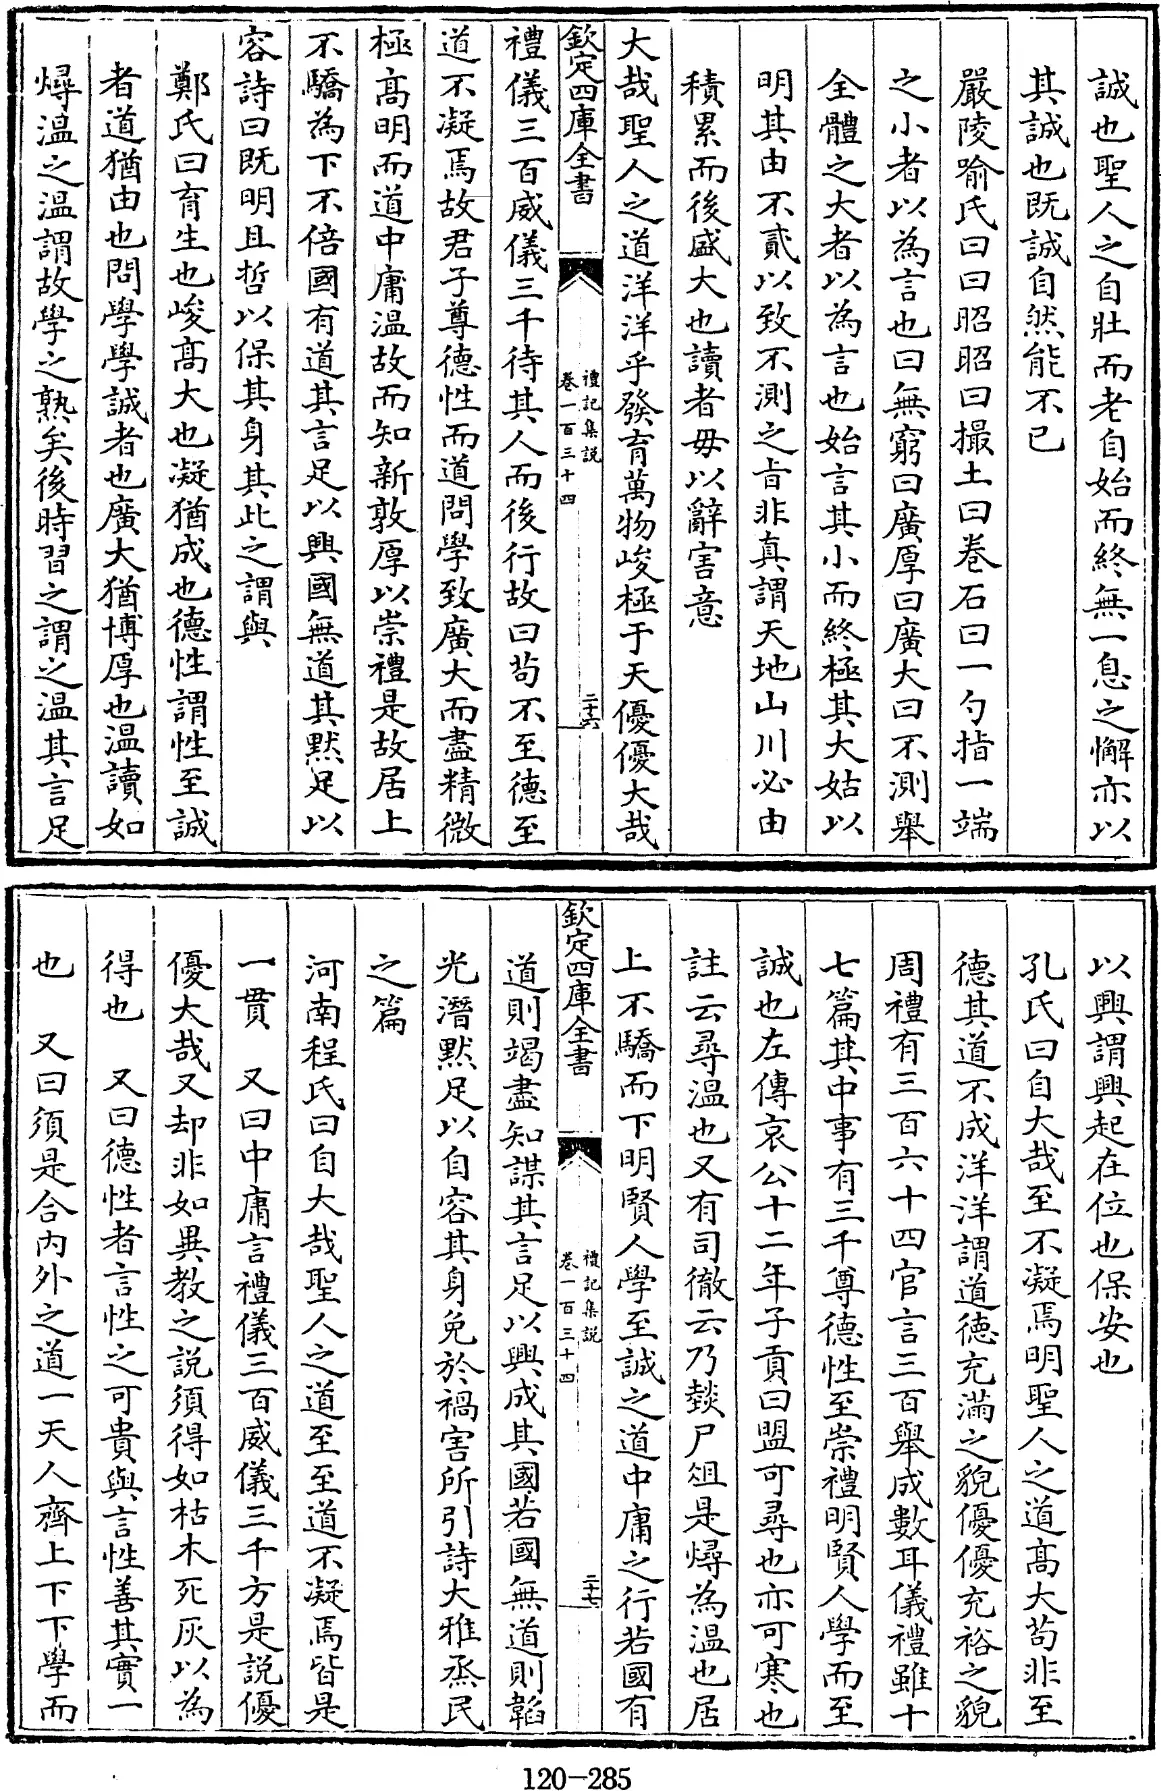 誠也聖人之自壯而老自始而終無一息之懈亦以
其誠也既誠自然能不已
嚴陵喻氏曰曰昭昭曰撮土曰卷石曰一勺指一端
之小者以為言也曰無窮曰廣厚曰廣大曰不測舉
全體之大者以為言也始言其小而終極其大姑以
明其由不貳以致不測之㫖非真謂天地山川必由
積累而後盛大也讀者毋以辭害意
大哉聖人之道洋洋乎發育萬物峻極于天優優大哉
欽定四庫全書
禮記集說
卷一百三十四
二十六
禮儀三百威儀三千待其人而後行故曰苟不至德至
道不凝焉故君子尊德性而道問學致廣大而盡精微
極高明而道中庸温故而知新敦厚以崇禮是故居上
不驕為下不倍國有道其言足以興國無道其黙足以
容詩曰既明且哲以保其身其此之謂與
鄭氏曰育生也峻高大也凝猶成也德性謂性至誠
者道猶由也問學學誠者也廣大猶博厚也温讀如
燖温之温謂故學之熟矣後時習之謂之温其言足
以興謂興起在位也保安也
孔氏曰自大哉至不凝焉明聖人之道高大苟非至
德其道不成洋洋謂道德充滿之貌優優充裕之貌
周禮有三百六十四官言三百舉成數耳儀禮雖十
七篇其中事有三千尊德性至崇禮明賢人學而至
誠也左傳哀公十二年子貢曰盟可尋也亦可寒也
註云尋温也又有司徹云乃燅尸俎是燖為温也居
上不驕而下明賢人學至誠之道中庸之行若國有
欽定四庫全書
禮記集說
卷一百三十四
二十七
道則竭盡知謀其言足以興成其國若國無道則韜
光潛黙足以自容其身免於禍害所引詩大雅烝民
之篇
河南程氏曰自大哉聖人之道至至道不凝焉皆是
一貫　又曰中庸言禮儀三百威儀三千方是說優
優大哉又却非如異教之説須得如枯木死灰以為
得也　又曰德性者言性之可貴與言性善其實一
也　又曰須是合内外之道一天人齊上下下學而
120-285